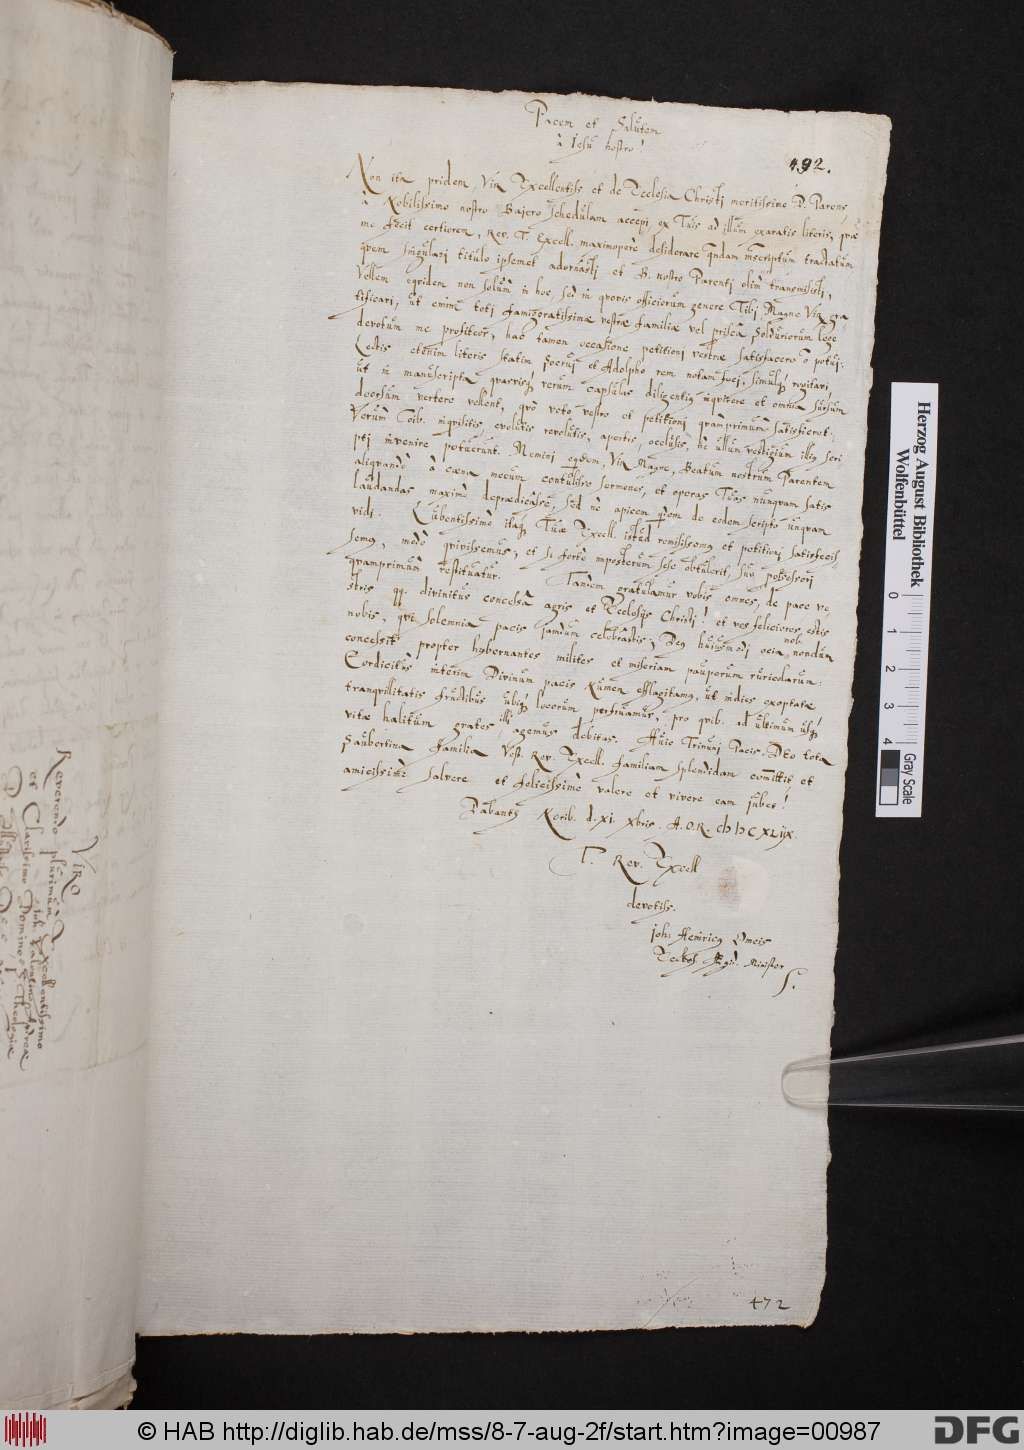 Pacem et Salutem
à Jesu nostro!
492.
Non ita pridem, Vir Excellentiss et de Ecclesia Christi meritissime D. Parens,
à Nobilissimo nostro Bajero schedulam accepi ex Tuis ad illum exaratis literis, quæ
me fecit certiorem, Rev. T. Excell. maximoperè desiderare quendam inscriptum tractatum
quem singulari titulo ipsemet adornasti et B. nostro Parenti olim transmisisti,
Vellem equidem non solùm in hoc, sed in quovis officiorum genere Tibi, Magne Vir, gra-
tificari, ut enim toti famigeratissimæ vestræ familiæ vel prisca Solduriorum lege
devotum me profiteor, hac tamen occasione petitioni vestræ satisfacere ñ potui:
Lectis etenim literis statim Socrui et Adolpho rem notam feci, simulq; rogitavi,
ut in manuscripta quævisq; rerum capsulas diligentius inquirere et omnia sursum
deorsum vertere vellent, quò voto vestro et petitioni quamprimùm satisfieret:
Verùm Toib. inquisitis, evolutis revolutis, apertis, occlusis, ne ullum vestigium illius scri
pti invenire potuerunt. Memini eqdem, Vir Magne, Beatum nostrum Parentem
aliquando à cæna mecum contulisse sermones, et operas Tuas nunquam satis
laudandas maximè deprædicasse, sed ne apicem qdem de eodem scripto unquam
vidi. Lubentissimè itaq; Tuæ Excell. istud remisissemus et petitioni satisfecis
semus, modò scivissemus, et si fortè inposterum sese obtulerit, suo possessori
quamprimùm restituatur. Tandem gratulamur vobis omnes, de pace ve-
stris qq. divinitus concessa agris et Ecclesijs Christi! et vos feliciores estis
nobis, qui solemnia pacis jamdum celebrastis; Deus huiusmodi ocia nob. nondum
concessit propter hybernantes milites et miseriam pauperum ruricolarum:
Cordicitus interim Divinum pacis Numen efflagitamus, ut indies exoptatæ
tranquillitatis fructibus ubiq; locorum perfruamur, pro quib. ad ultimum usq;
vitæ halitum grates illi agemus debitas. Huic Trinuni Pacis Deo tota
Saubertina familia Vest. Rev. Excell. familiam splendidam comittit et
amicissimè salvere et felicissimè valere et vivere eam jubet!
Dabantur Norib. d. XI. Xbris. A.O.R. MDCXLIIX.
T. Rev. Excell
devotiss.
Joh. Henricus Omeis
Eccles. Ægid. Minister
S.
472
VIRO
Reverendo plurimùm
et Clarissimo Domino
Excellentissimo
Herzog August Bibliothek
Wolfenbüttel
0 1 2 3 4
Gray Scale
© HAB http://diglib.hab.de/mss/8-7-aug-2f/start.htm?image=00987
DFG